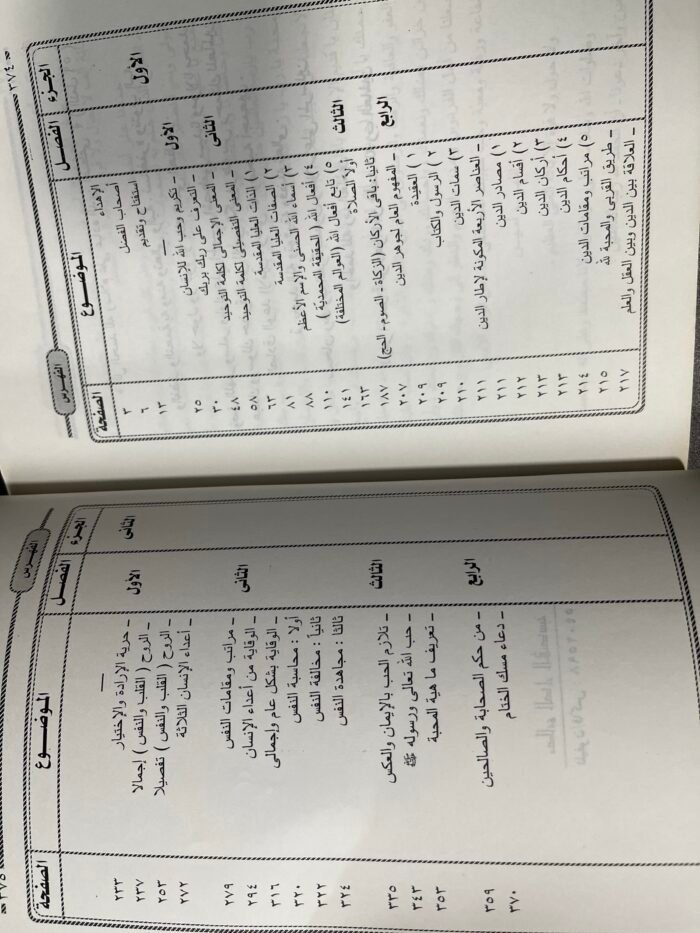 ٣٧٤
الفهرس
الجزء الفصل الموضوع الصفحة
الأول
الإهداء ٣
أصحاب الفضل ٦
استفتاح وتقديم ١٣
الأول
ـ تكريم وحب الله للإنسان ٢٥
ـ التعرف على ربك بربك ٣٠
الثانى
ـ المعنى الإجمالى لكلمة التوحيد ٤٨
ـ المعنى التفصيلى لكلمة التوحيد ٥٨
١) الذات العليا المقدسة ٦٣
٢) الصفات العليا المقدسة ٨١
٣) أسماء الله الحسنى والإسم الأعظم ٨٨
٤) أفعال الله ( الحقيقة المحمدية ) ١١٠
٥) تابع أفعال الله (العوالم المختلفة) ١٤١
الثالث
أولاً الصلاة ١٦٣
ثانياً: باقى الأركان (الزكاة - الصوم - الحج) ١٨٧
الرابع
ـ المفهوم العام لجوهر الدين ٢٠٧
١ ) العقيدة ٢٠٩
٢ ) الرسول والكتاب ٢٠٩
٣) سمات الدين ٢١٠
ـ العناصر الأربعة المكونة لإطار الدين ٢١١
١) مصادر الدين ٢١١
٢) أقسام الدين ٢١٢
٣) أركان الدين ٢١٣
٤) أحكام الدين ٢١٣
٥) مراتب ومقامات الدين ٢١٤
ـ طريق القربى والمحبة لله ٢١٥
ـ العلاقة بين الدين وبين العقل والعلم ٢١٧
٣٧٥
الفهرس
الجزء الفصل الموضوع الصفحة
الثانى
الأول
ـ حرية الإرادة والإختيار ٢٣٣
ـ الروح ( القلب والنفس ) إجمالا ٢٣٧
ـ الروح ( القلب والنفس ) تفصيلا ٢٥٣
ـ أعداء الإنسان الثلاثة ٢٧٢
الثانى
ـ مراتب ومقامات النفس ٢٧٩
ـ الوقاية من أعداء الإنسان ٢٩٤
ـ الوقاية بشكل عام وإجمالى ٣١٦
أولا : محاسبة النفس ٣٢٠
ثانياً : مخالفة النفس ٣٢٢
ثالثا : مجاهدة النفس ٣٢٤
الثالث
ـ تلازم الحب بالإيمان والعكس ٣٣٥
ـ حب الله تعالى ورسوله ﷺ ٣٤٣
ـ تعريف ما هية المحبة ٣٥٣
الرابع
ـ من حكم الصحابة والصالحين ٣٥٩
ـ دعاء مسك الختام ٣٧٠